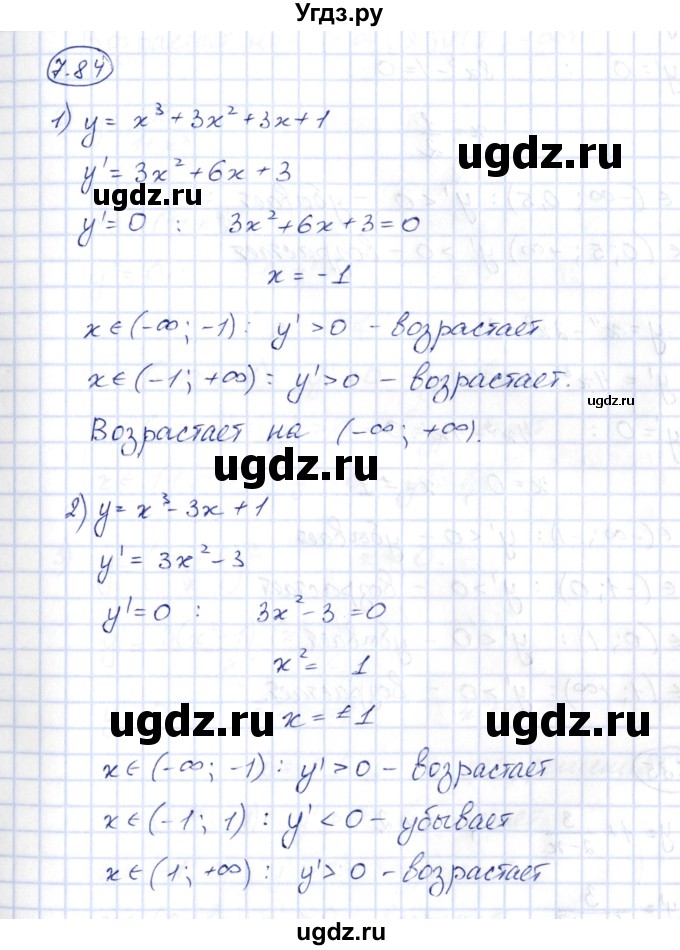 Угдз.ру
7.84
1) y = x³ + 3x² + 3x + 1
y' = 3x² + 6x + 3
ugdz.ru
ugdz.ru
y' = 0 : 3x² + 6x + 3 = 0
x = -1
x ∈ (-∞; -1) : y' > 0 - возрастает
x ∈ (-1; +∞) : y' > 0 - возрастает.
ugdz.ru
Возрастает на (-∞; +∞).
ugdz.ru
2) y = x³ - 3x + 1
y' = 3x² - 3
y' = 0 : 3x² - 3 = 0
x² = 1
x = ±1
ugdz.ru
ugdz.ru
x ∈ (-∞; -1) : y' > 0 - возрастает
x ∈ (-1; 1) : y' < 0 - убывает
x ∈ (1; +∞) : y' > 0 - возрастает
ugdz.ru
ugdz.ru